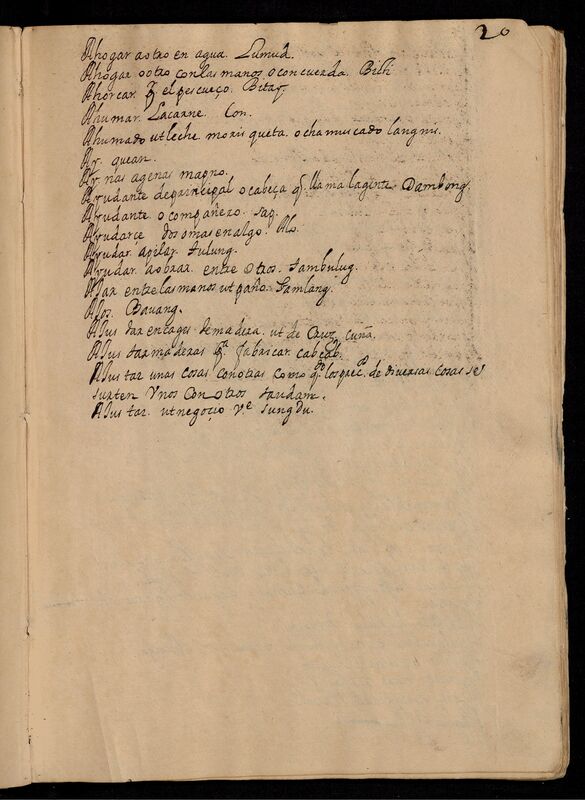 20
Ahogar a otro en agua. Lumud.
Ahogar o otro con las manos o con cuerda. Bicti
Ahorcar. el pescueço. Bitay
Ahumar. Lacarne. Con.
Ahumado ut leche moris queta. o chamuscado langnis.
Ay. quean.
Ay. nas agenas magno.
Ayudante de principal o cabeça q. llama la gente. Dambong.
Ayudante o compañero. sag.
Ayudarçe dos o mas en algo. Alo.
Ayudar. apilar. tulung.
Ayudar. a obrar. entre otros. tambulug.
Ajar entre las manos ut paño. Samlang.
Ajos. Bauang.
Ajustar encages de madera. ut de Cruz. cuña.
Ajustar maderas pa. fabricar. cabcab.
Ajustar unas cosas con otras como qdo. los prec.os de diversas cosas se
surten Unos Con otros tandam.
Ajustar. ut negoçio Ve. sungdu.